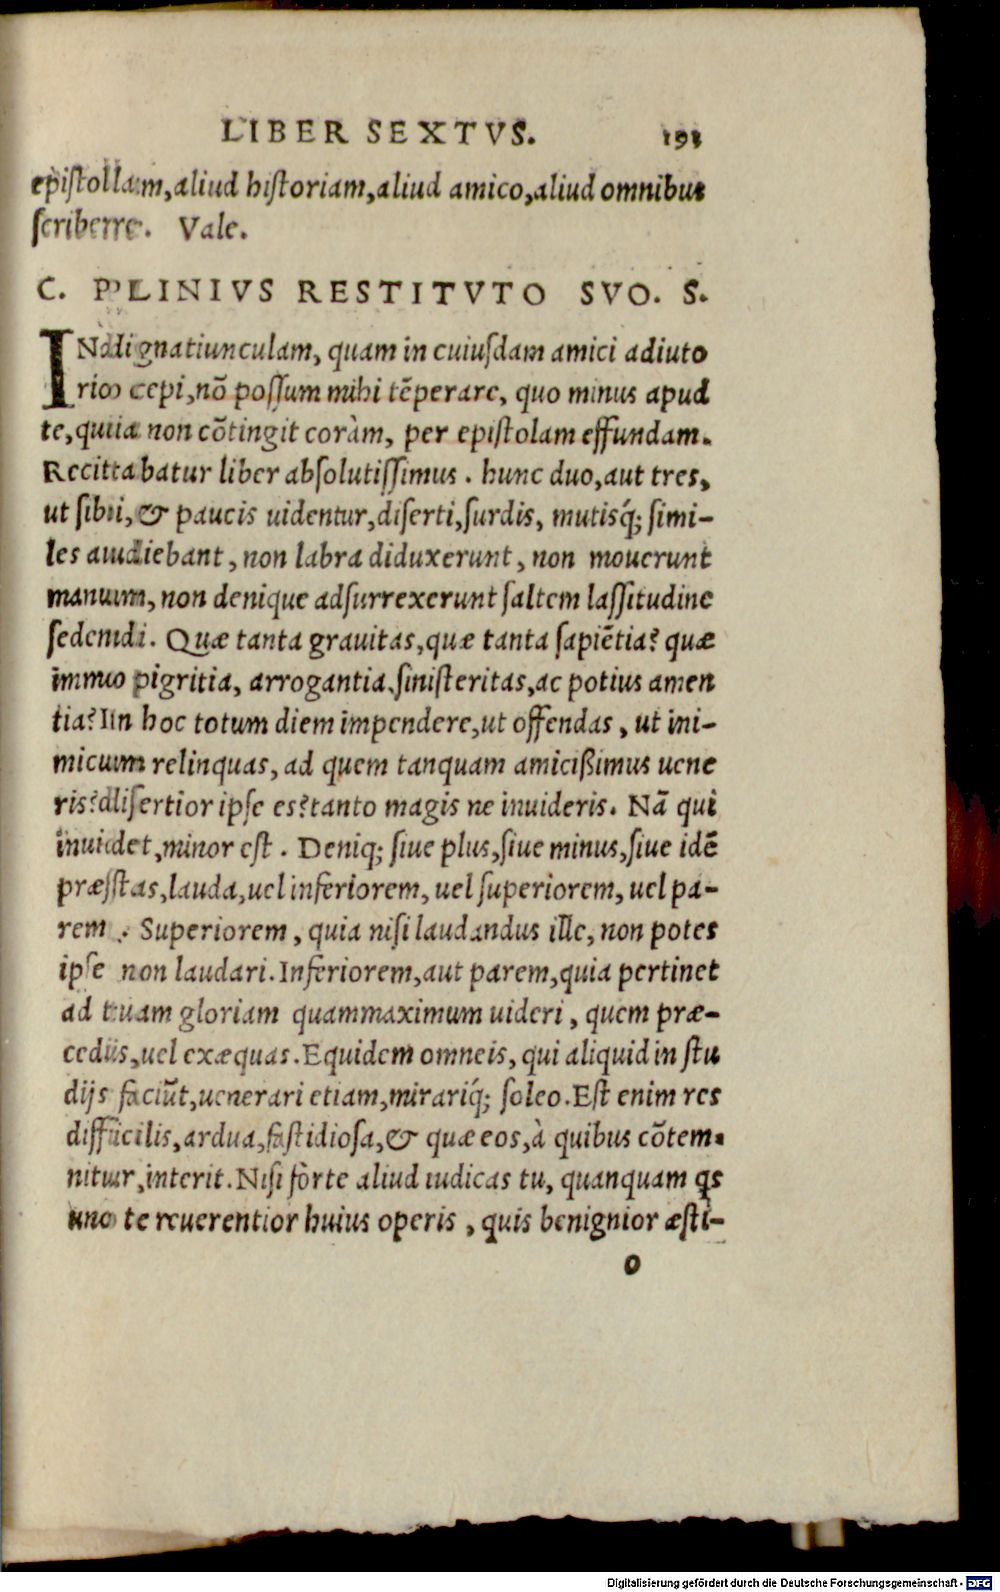 LIBER SEXTVS. 193
epistolam, aliud historiam, aliud amico, aliud omnibus
scribere. Vale.
C. PLINIVS RESTITVTO SVO. S.
INdignatiunculam, quam in cuiusdam amici adiuto
rio cepi, nō possum mihi tēperare, quo minus apud
te, quia non cōtingit coràm, per epistolam effundam.
Recitabatur liber absolutissimus. hunc duo, aut tres,
ut sibi, & paucis uidentur, diserti, surdis, mutisq́; simi-
les audiebant, non labra diduxerunt, non mouerunt
manum, non denique adsurrexerunt saltem lassitudine
sedendi. Quæ tanta grauitas, quæ tanta sapiētia? quæ
immo pigritia, arrogantia, sinisteritas, ac potius amen
tia? In hoc totum diem impendere, ut offendas, ut ini-
micum relinquas, ad quem tanquam amicißimus uene
ris? disertior ipse es? tanto magis ne inuideris. Nā qui
inuidet, minor est. Deniq; siue plus, siue minus, siue idē
præstas, lauda, uel inferiorem, uel superiorem, uel pa-
rem. Superiorem, quia nisi laudandus ille, non potes
ipse non laudari. Inferiorem, aut parem, quia pertinet
ad tuam gloriam quammaximum uideri, quem præ-
cedis, uel exæquas. Equidem omneis, qui aliquid in stu
dijs faciūt, uenerari etiam, mirariq́; soleo. Est enim res
difficilis, ardua, fastidiosa, & quæ eos, à quibus cōtem-
nitur, interit. Nisi fòrte aliud iudicas tu, quanquam qs
uno te reuerentior huius operis, quis benignior æsti-
o
Digitalisierung gefördert durch die Deutsche Forschungsgemeinschaft - DFG